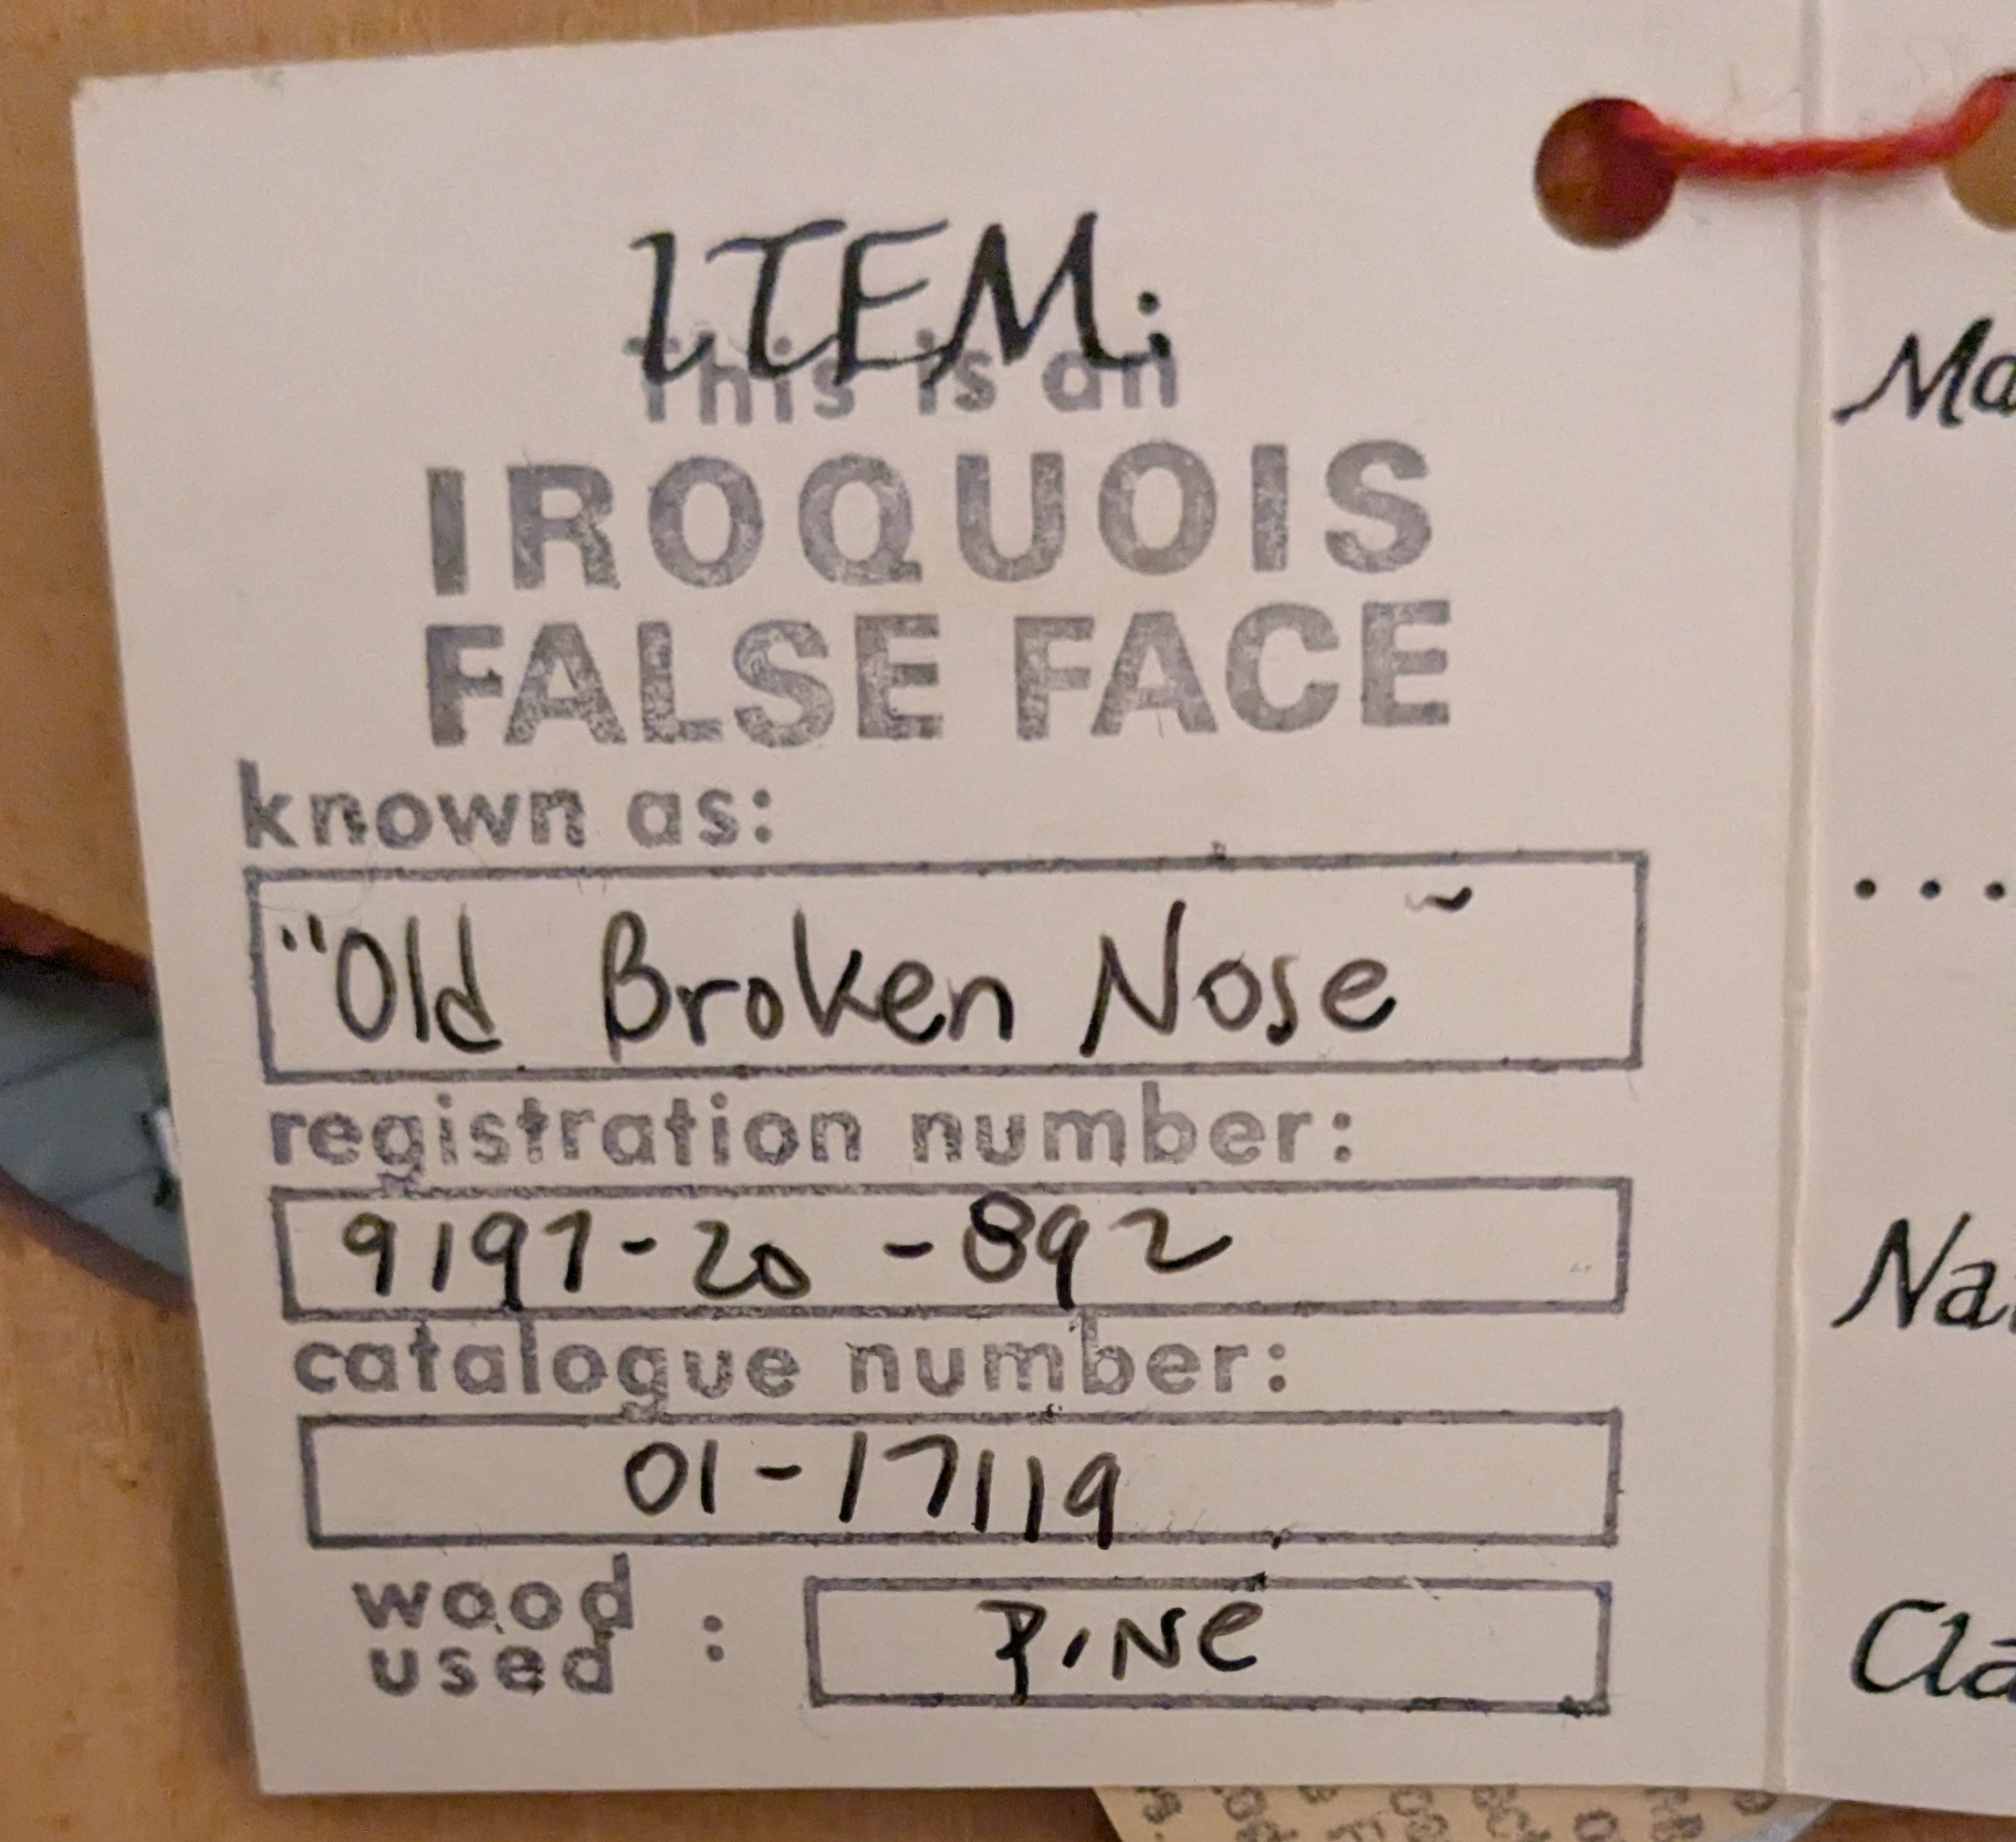 ITEM:
This is an
IROQUOIS
FALSE FACE
known as:
"Old Broken Nose"
registration number:
9197-20-892
catalogue number:
01-17119
wood
used :
PINE
Ma
...
Na
Cla